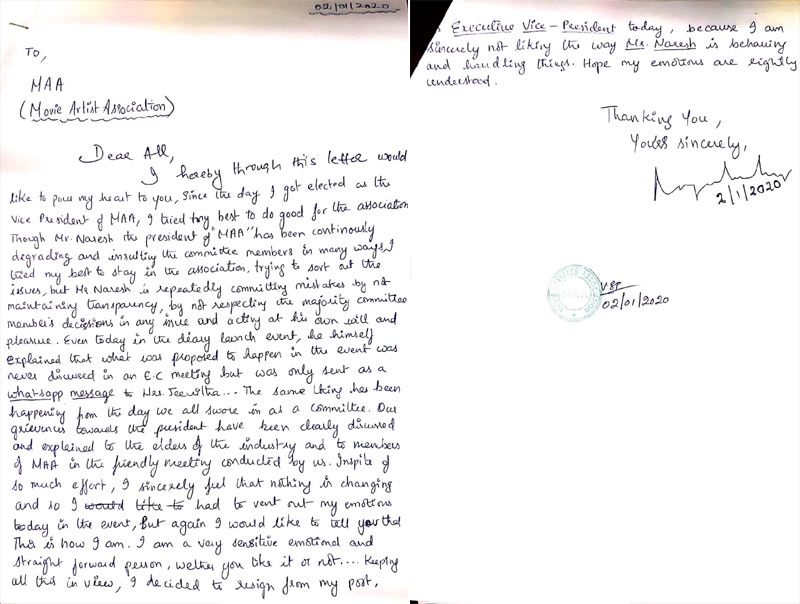 02/01/2020
TO,
MAA
(Movie Artist Association)
Dear All,
I hereby through this letter would
like to pour my heart to you, Since the day I got elected as the
Vice President of MAA, I tried my best to do good for the association
Though Mr. Naresh the president of "MAA" has been continously
degrading and insulting the committee members in many ways, I
tried my best to stay in the association, trying to sort out the
issues, but Mr Naresh is repeatedly committing mistakes by not
maintaining transparency, by not respecting the majority committee
member's decisions in any issue and acting at his own will and
pleasure. Even today in the diary launch event, he himself
explained that what was proposed to happen in the event was
never discussed in an E.C meeting but was only sent as a
whatsapp message to Mrs. Jeevitha... The same thing has been
happening from the day we all swore in as a committee. Our
grievences towards the president have been clearly discussed
and explained to the elders of the industry and to members
of MAA in the friendly meeting conducted by us. Inspite of
so much effort, I sincerely feel that nothing is changing
and so I would like to had to vent out my emotions
today in the event, But again I would like to tell you that
This is how I am. I am a very sensitive emotional and
straight forward person, wether you like it or not.... Keeping
all this in view, I decided to resign from my post,
Executive Vice - President today, because I am
sincerely not liking the way Mr. Naresh is behaving
and handling things. Hope my emotions are rightly
understood.
Thanking You,
Yours sincerely,
2/1/2020
MAA
02/01/2020